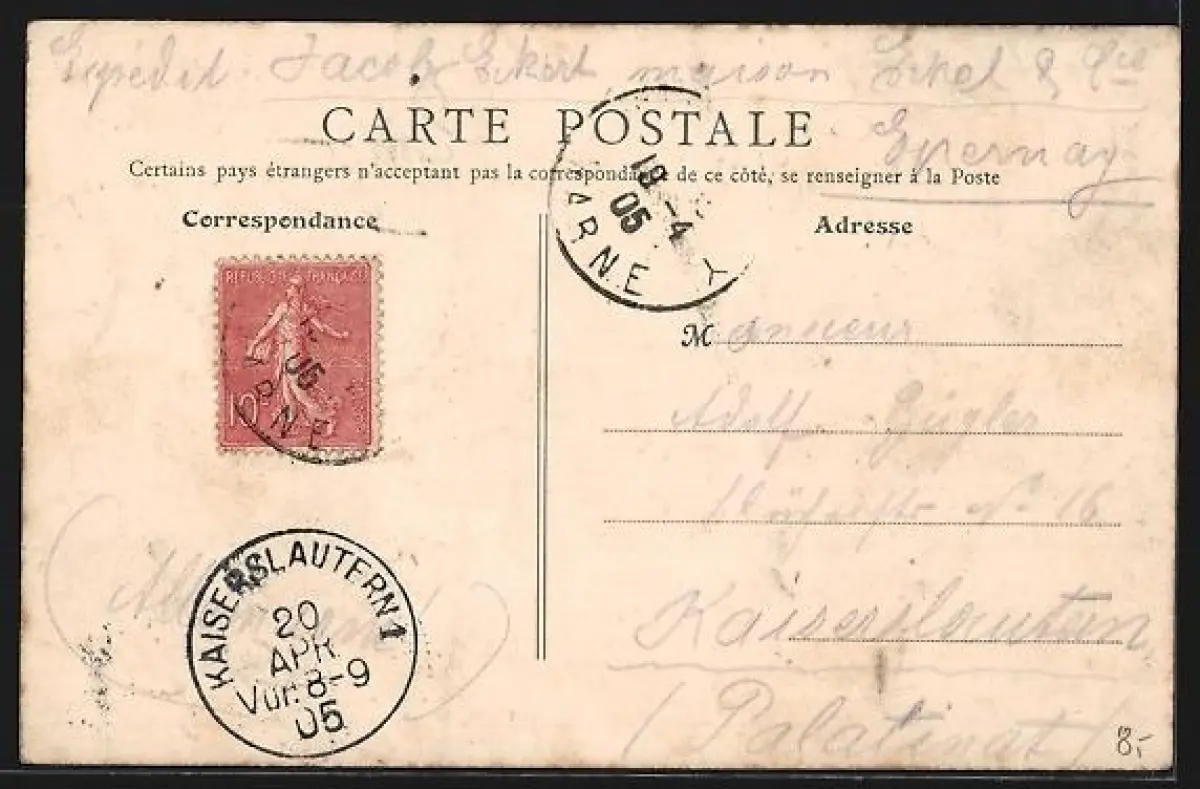 Expédit. Jacob Ekert, maison Eckel & Cie
Epernay
CARTE POSTALE
Certains pays étrangers n'acceptant pas la correspondance de ce côté, se renseigner à la Poste
Correspondance
Adresse
18 -4
05
MARNE
REPUBLIQUE FRANÇAISE
10
05
MARNE
Monsieur
Adolf
No 16
Kaiserslautern
(Palatinat)
(Allemagne)
KAISERSLAUTERN 1
20
APR
Vor. 8-9
05
8,-